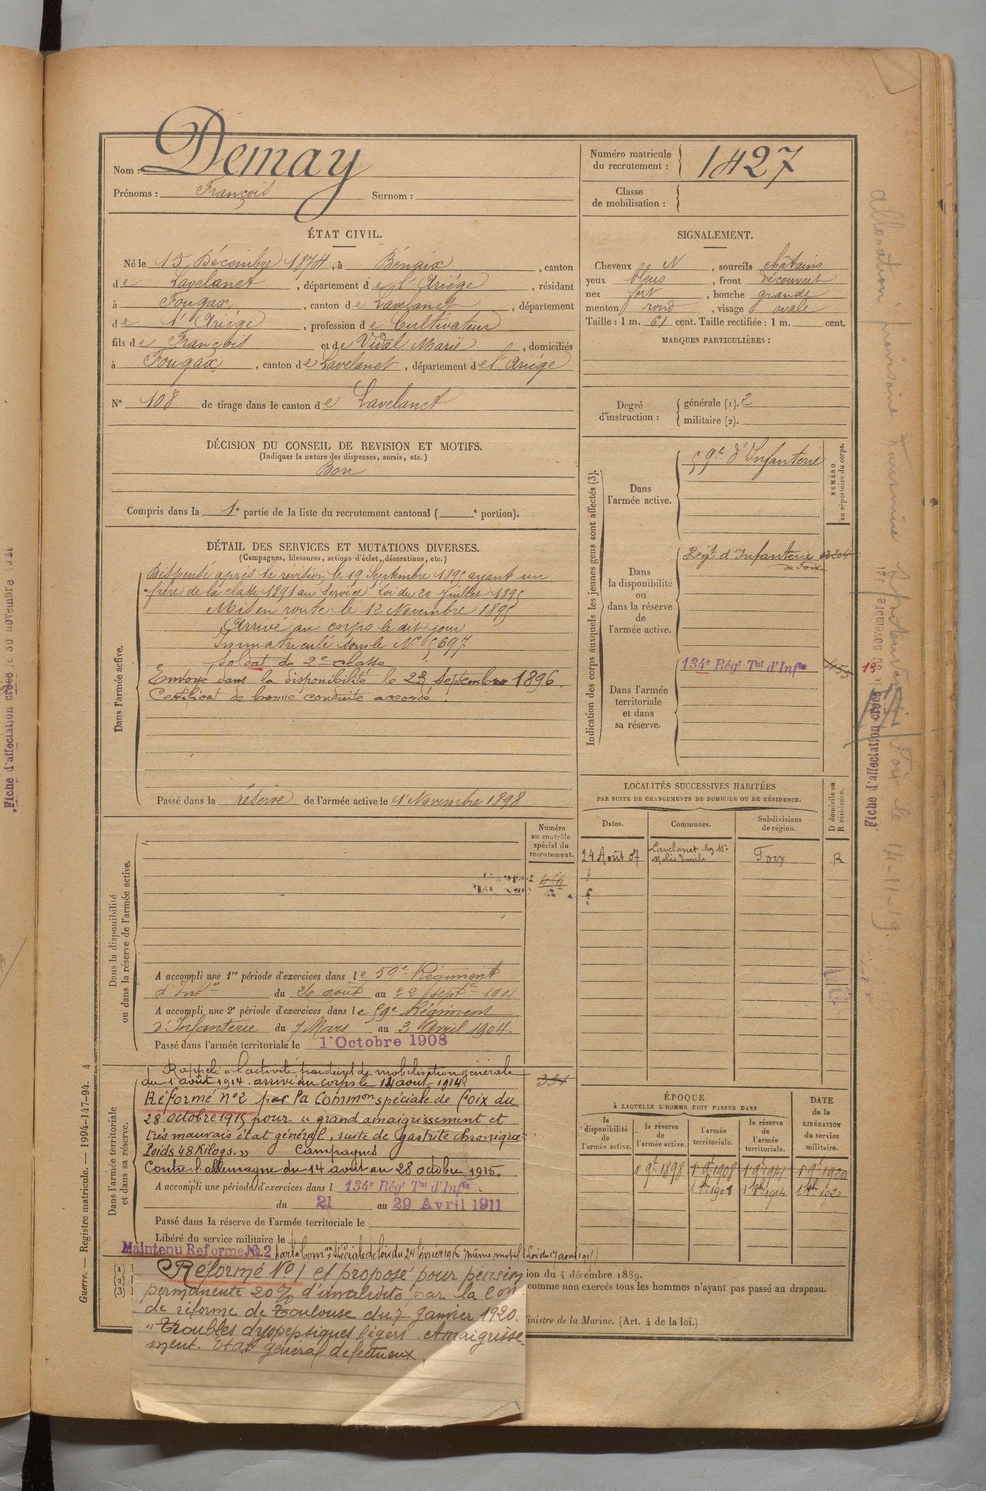 Nom : Demay
Prénoms : François Surnom :
Numéro matricule du recrutement : 1427
Classe de mobilisation :
ÉTAT CIVIL.
Né le 15 Décembre 1874, à Bénaix, canton
de Lavelanet, département de l'Ariége, résidant
à Fougax, canton de Lavelanet, département
de l'Ariége, profession de Cultivateur
fils de François et de Vidal Marie, domiciliés
à Fougax, canton de Lavelanet, département de l'Ariége
N° 108 de tirage dans le canton de Lavelanet
SIGNALEMENT.
Cheveux N, sourcils châtains
yeux bleus, front découvert
nez fort, bouche grande
menton rond, visage ovale
Taille : 1 m. 61 cent. Taille rectifiée : 1 m. cent.
MARQUES PARTICULIÈRES :
Degré d'instruction : générale (1). 2
militaire (2).
DÉCISION DU CONSEIL DE REVISION ET MOTIFS.
(Indiquer la nature des dispenses, sursis, etc.)
Bon
Compris dans la 1e partie de la liste du recrutement cantonal ( e portion).
DÉTAIL DES SERVICES ET MUTATIONS DIVERSES.
(Campagnes, blessures, actions d'éclat, décorations, etc.)
Dans l'armée active.
Dispensé après la révision le 19 Septembre 1895 ayant un
frère de la classe 1891 au service Loi du 20 Juillet 1895
Mis en route le 12 Novembre 1895
Arrivé au corps le dit jour
Immatriculé sous le N° 5697
Soldat de 2e classe
Envoyé dans la disponibilité le 23 Septembre 1896
Certificat de bonne conduite accordé
Passé dans la réserve de l'armée active le 1 Novembre 1898
Indication des corps auxquels les jeunes gens sont affectés (3).
NUMÉRO au répertoire du corps.
Dans l'armée active.
59e d'Infanterie
Dans la disponibilité ou dans la réserve de l'armée active.
Régt d'Infanterie
de Foix
Dans l'armée territoriale et dans sa réserve.
134e Régt Tal d'Infie
LOCALITÉS SUCCESSIVES HABITÉES
PAR SUITE DE CHANGEMENTS DE DOMICILE OU DE RÉSIDENCE.
Dates. Communes. Subdivisions de région. D domicile ou R résidence.
24 Août 07 Lavelanet chez Mr Foix R
Numéro au contrôle spécial du recrutement.
Dans la disponibilité ou dans la réserve de l'armée active.
A accompli une 1re période d'exercices dans le 59e Régiment
d'Infie du 26 août au 22 septbre 1901
A accompli une 2e période d'exercices dans le 59e Régiment
d'Infanterie du 7 Mars au 3 Avril 1904.
Passé dans l'armée territoriale le 1 Octobre 1908
Dans l'armée territoriale et dans sa réserve.
Rappelé à l'activité par décret de mobilisation générale
du 1 août 1914. arrivé au corps le 14 août 1914
Réformé n°2 par la Common spéciale de Foix du
28 octobre 1915 pour « grand amaigrissement et
très mauvais état général, suite de gastrite chronique
Poids 48 Kilogs. » Campagnes
Contre l'allemagne du 14 août au 28 octobre 1915.
A accompli une période d'exercices dans l 134e Régt Tal d'Infie
du 21 au 29 Avril 1911
Passé dans la réserve de l'armée territoriale le
Libéré du service militaire le
Maintenu Reforme N° 2 par la Comon spéciale de Foix du 24 février 1916 même motif (Loi du 17 août 1915)
ÉPOQUE
À LAQUELLE L'HOMME DOIT PASSER DANS
DATE de la LIBÉRATION du service militaire.
la disponibilité de l'armée active. la réserve de l'armée active. l'armée territoriale. la réserve de l'armée territoriale.
1 9bre 1898 1 9bre 1908 1 9bre 1914 1 9bre 1920
Réformé N°1 et proposé pour pension
permanente 20% d'invalidité par la Con
de réforme de Toulouse du 7 Janvier 1920.
"Troubles dyspeptiques légers. Amaigrisse-
ment. Etat général défectueux.
ion du 4 décembre 1889.
comme non exercés tous les hommes n'ayant pas passé au drapeau.
inistre de la Marine. (Art. 4 de la loi.)
Guerre. — Registre matricule. — 1904-147-94. 4
Fiche d'affectation créée